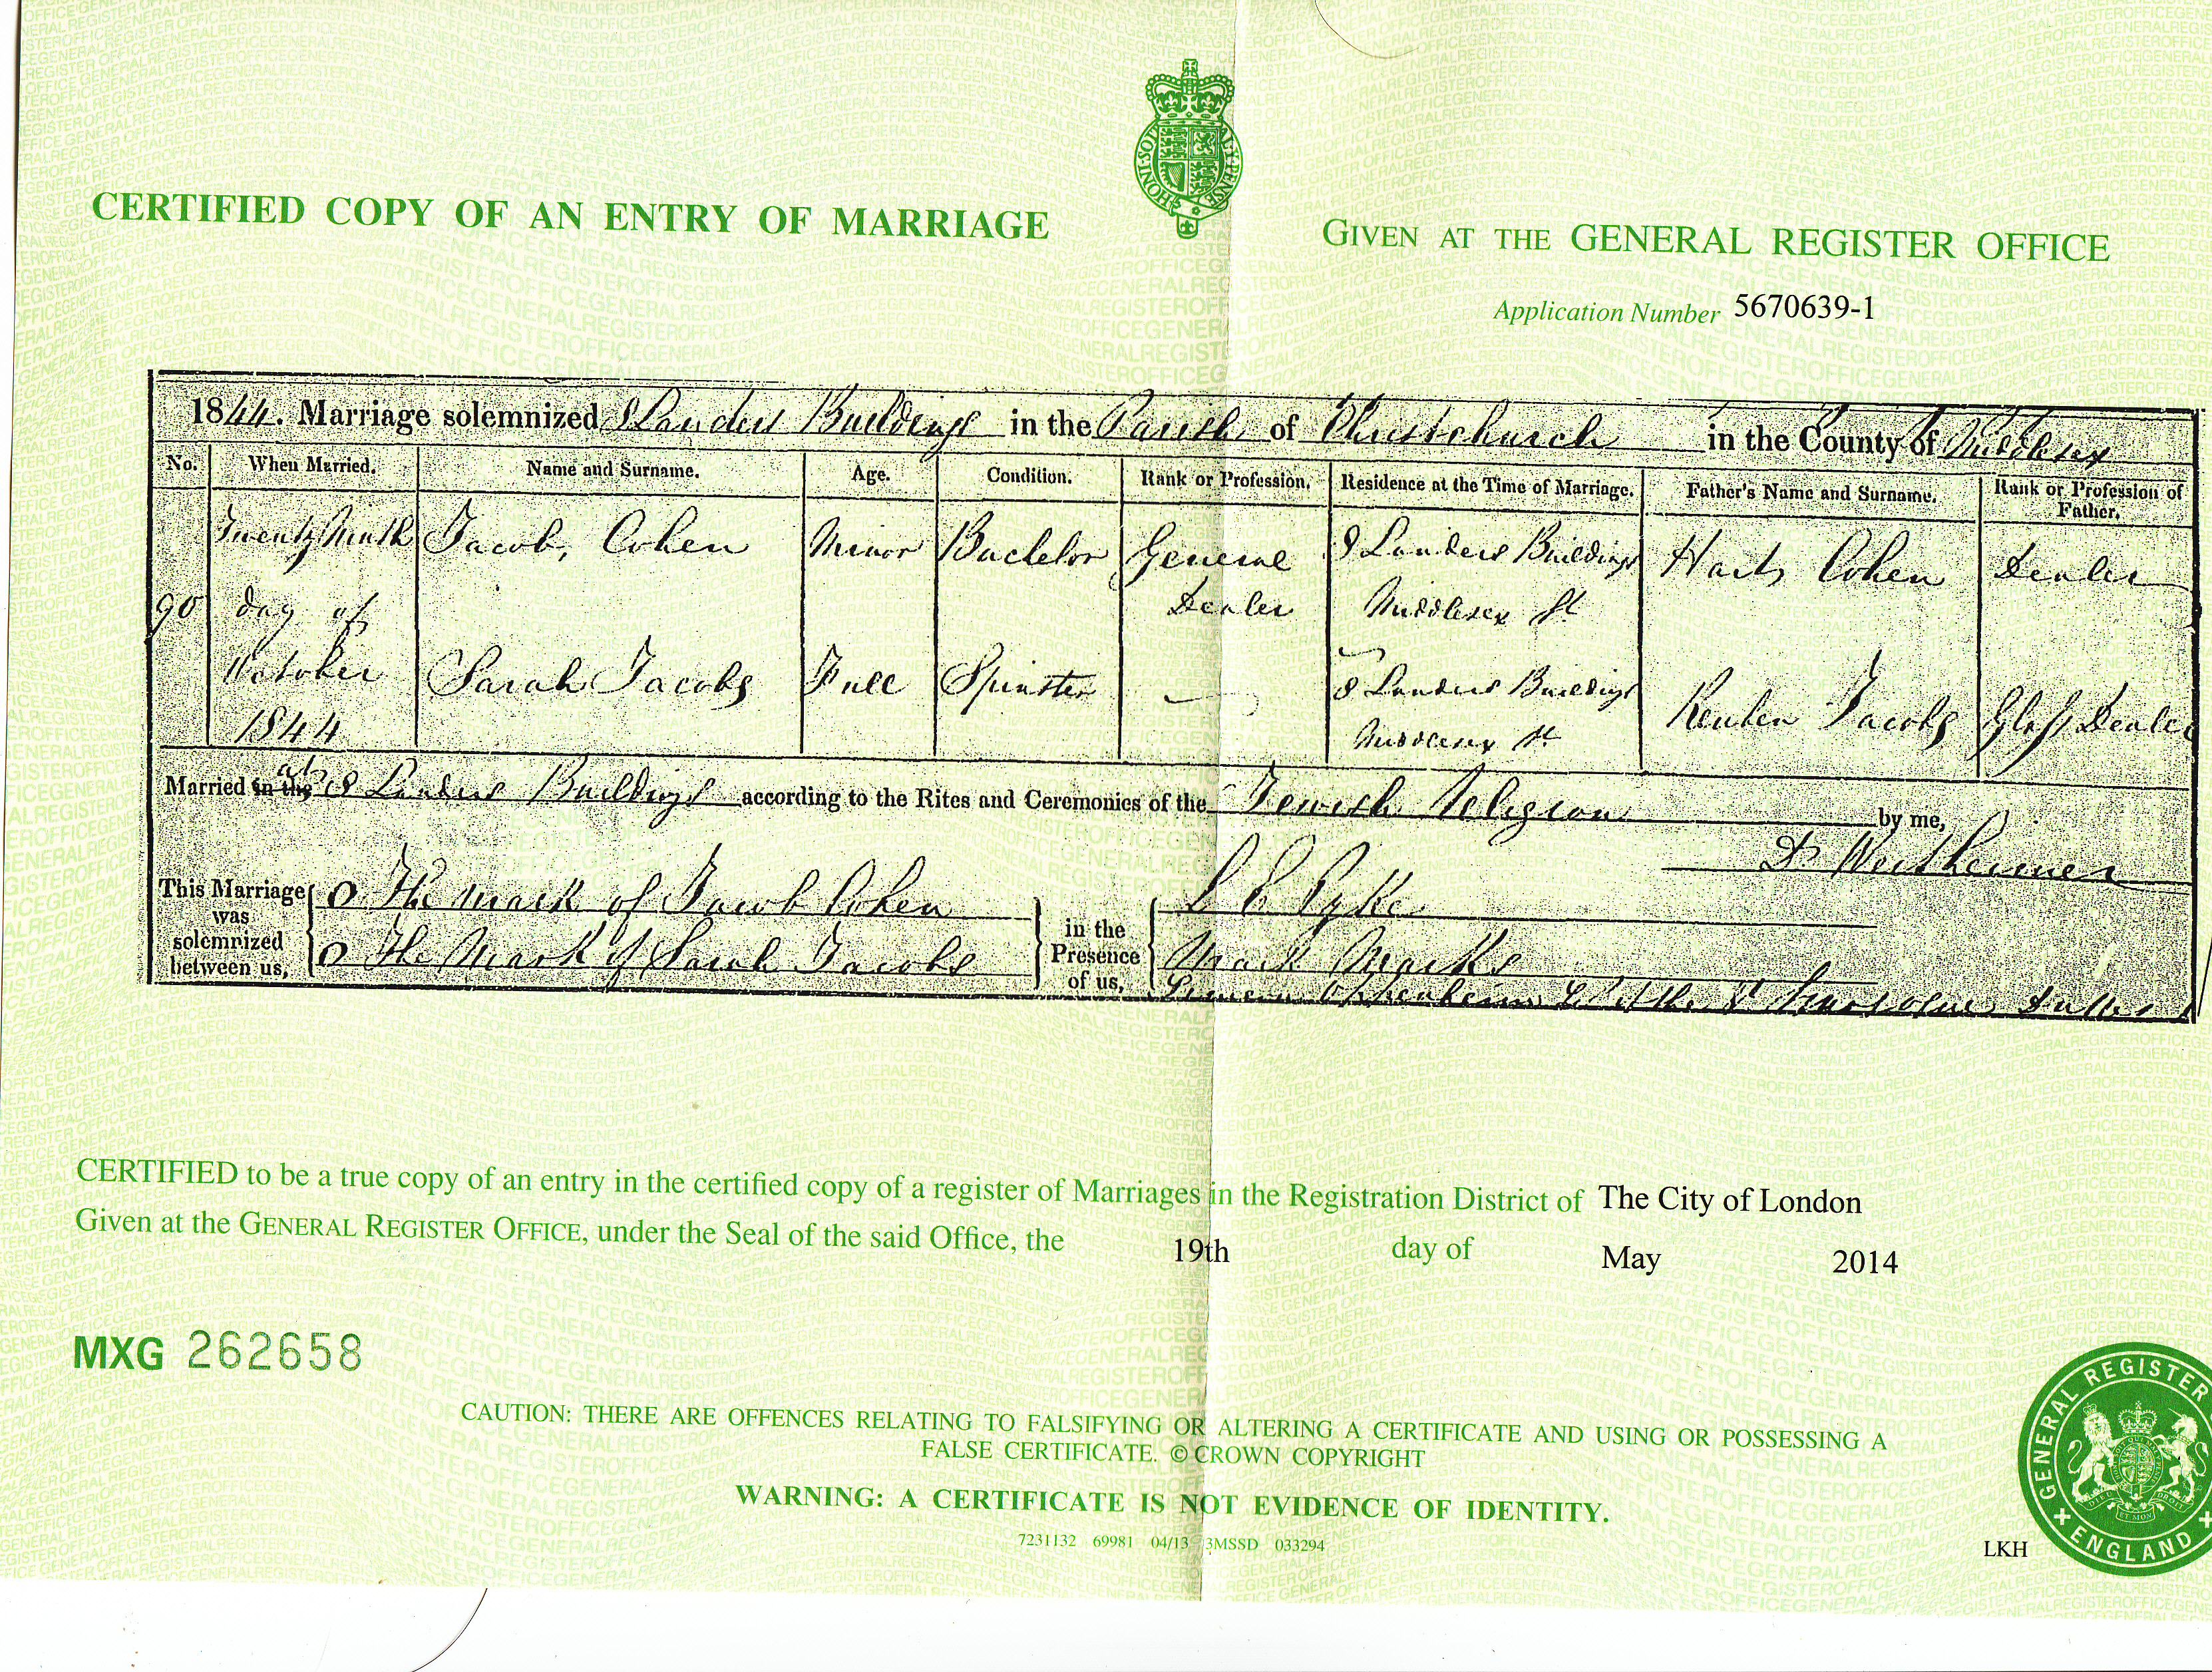 CERTIFIED COPY OF AN ENTRY OF MARRIAGE
HONI SOIT
GIVEN AT THE GENERAL REGISTER OFFICE
Application Number 5670639-1
1844. Marriage solemnized 8 Landers Buildings in the Parish of Christchurch in the County of Middlesex
No. When Married. Name and Surname. Age. Condition. Rank or Profession. Residence at the Time of Marriage. Father's Name and Surname. Rank or Profession of Father.
90 Twenty Ninth day of October 1844
Jacob Cohen Minor Bachelor General Dealer 8 Landers Buildings Middlesex St Hart Cohen Dealer
Sarah Jacobs Full Spinster — 8 Landers Buildings Middlesex St Reuben Jacobs Glass Dealer
Married in the at 8 Landers Buildings according to the Rites and Ceremonies of the Jewish Religion by me,
Wertheimer
This Marriage was solemnized between us,
O The mark of Jacob Cohen
O The Mark of Sarah Jacobs
in the Presence of us,
Pyke
Mark Marks
Simeon Oppenheim of the Synagogue
CERTIFIED to be a true copy of an entry in the certified copy of a register of Marriages in the Registration District of The City of London
Given at the GENERAL REGISTER OFFICE, under the Seal of the said Office, the 19th day of May 2014
MXG 262658
CAUTION: THERE ARE OFFENCES RELATING TO FALSIFYING OR ALTERING A CERTIFICATE AND USING OR POSSESSING A
FALSE CERTIFICATE. © CROWN COPYRIGHT
WARNING: A CERTIFICATE IS NOT EVIDENCE OF IDENTITY.
7231132 69981 04/13 3MSSD 033294
LKH
GENERAL REGISTER
ENGLAND